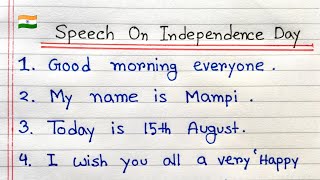 Speech On Independence Day
1. Good morning everyone.
2. My name is Mampi.
3. Today is 15th August.
4. I wish you all a very 'Happy